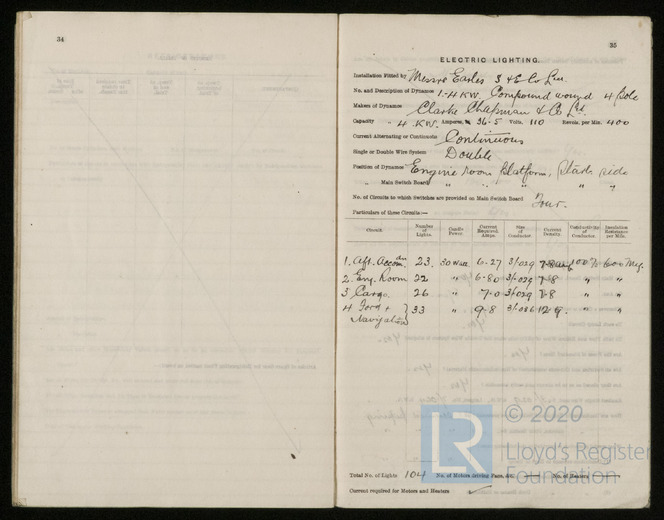 34
35
ELECTRIC LIGHTING.
Installation Fitted by Messrs Earles S & E Co Ltd
No. and Description of Dynamos 1-4KW. Compound wound 4 pole
Makers of Dynamos Clarke Chapman & Co Ltd.
Capacity " 4 KW. Amperes, 36.5 Volts, 110 Revols. per Min. 400
Current Alternating or Continuous Continuous
Single or Double Wire System Double
Position of Dynamos Engine room platform, starb side
" Main Switch Board " " " " "
No. of Circuits to which Switches are provided on Main Switch Board Four.
Particulars of these Circuits:—
Circuit. Number of Lights. Candle Power. Current Required. Amps. Size of Conductor. Current Density. Conductivity of Conductor. Insulation Resistance per Mile.
1. Aft. Accom. 23. 30 Watt 6.27 3/.029 100% 600 Meg.
2. Eng. Room 22 " 6.80 3/.029 7.8 " "
3 Cargo. 26 " 7.0 3/.029 7.8 " "
4 Ford + Navigation } 33 " 9.8 3/.036 12.9. " "
Total No. of Lights 104 No. of Motors driving Fans, &c. — No. of Heaters —
Current required for Motors and Heaters
LR
© 2020
Lloyd's Register
Foundation